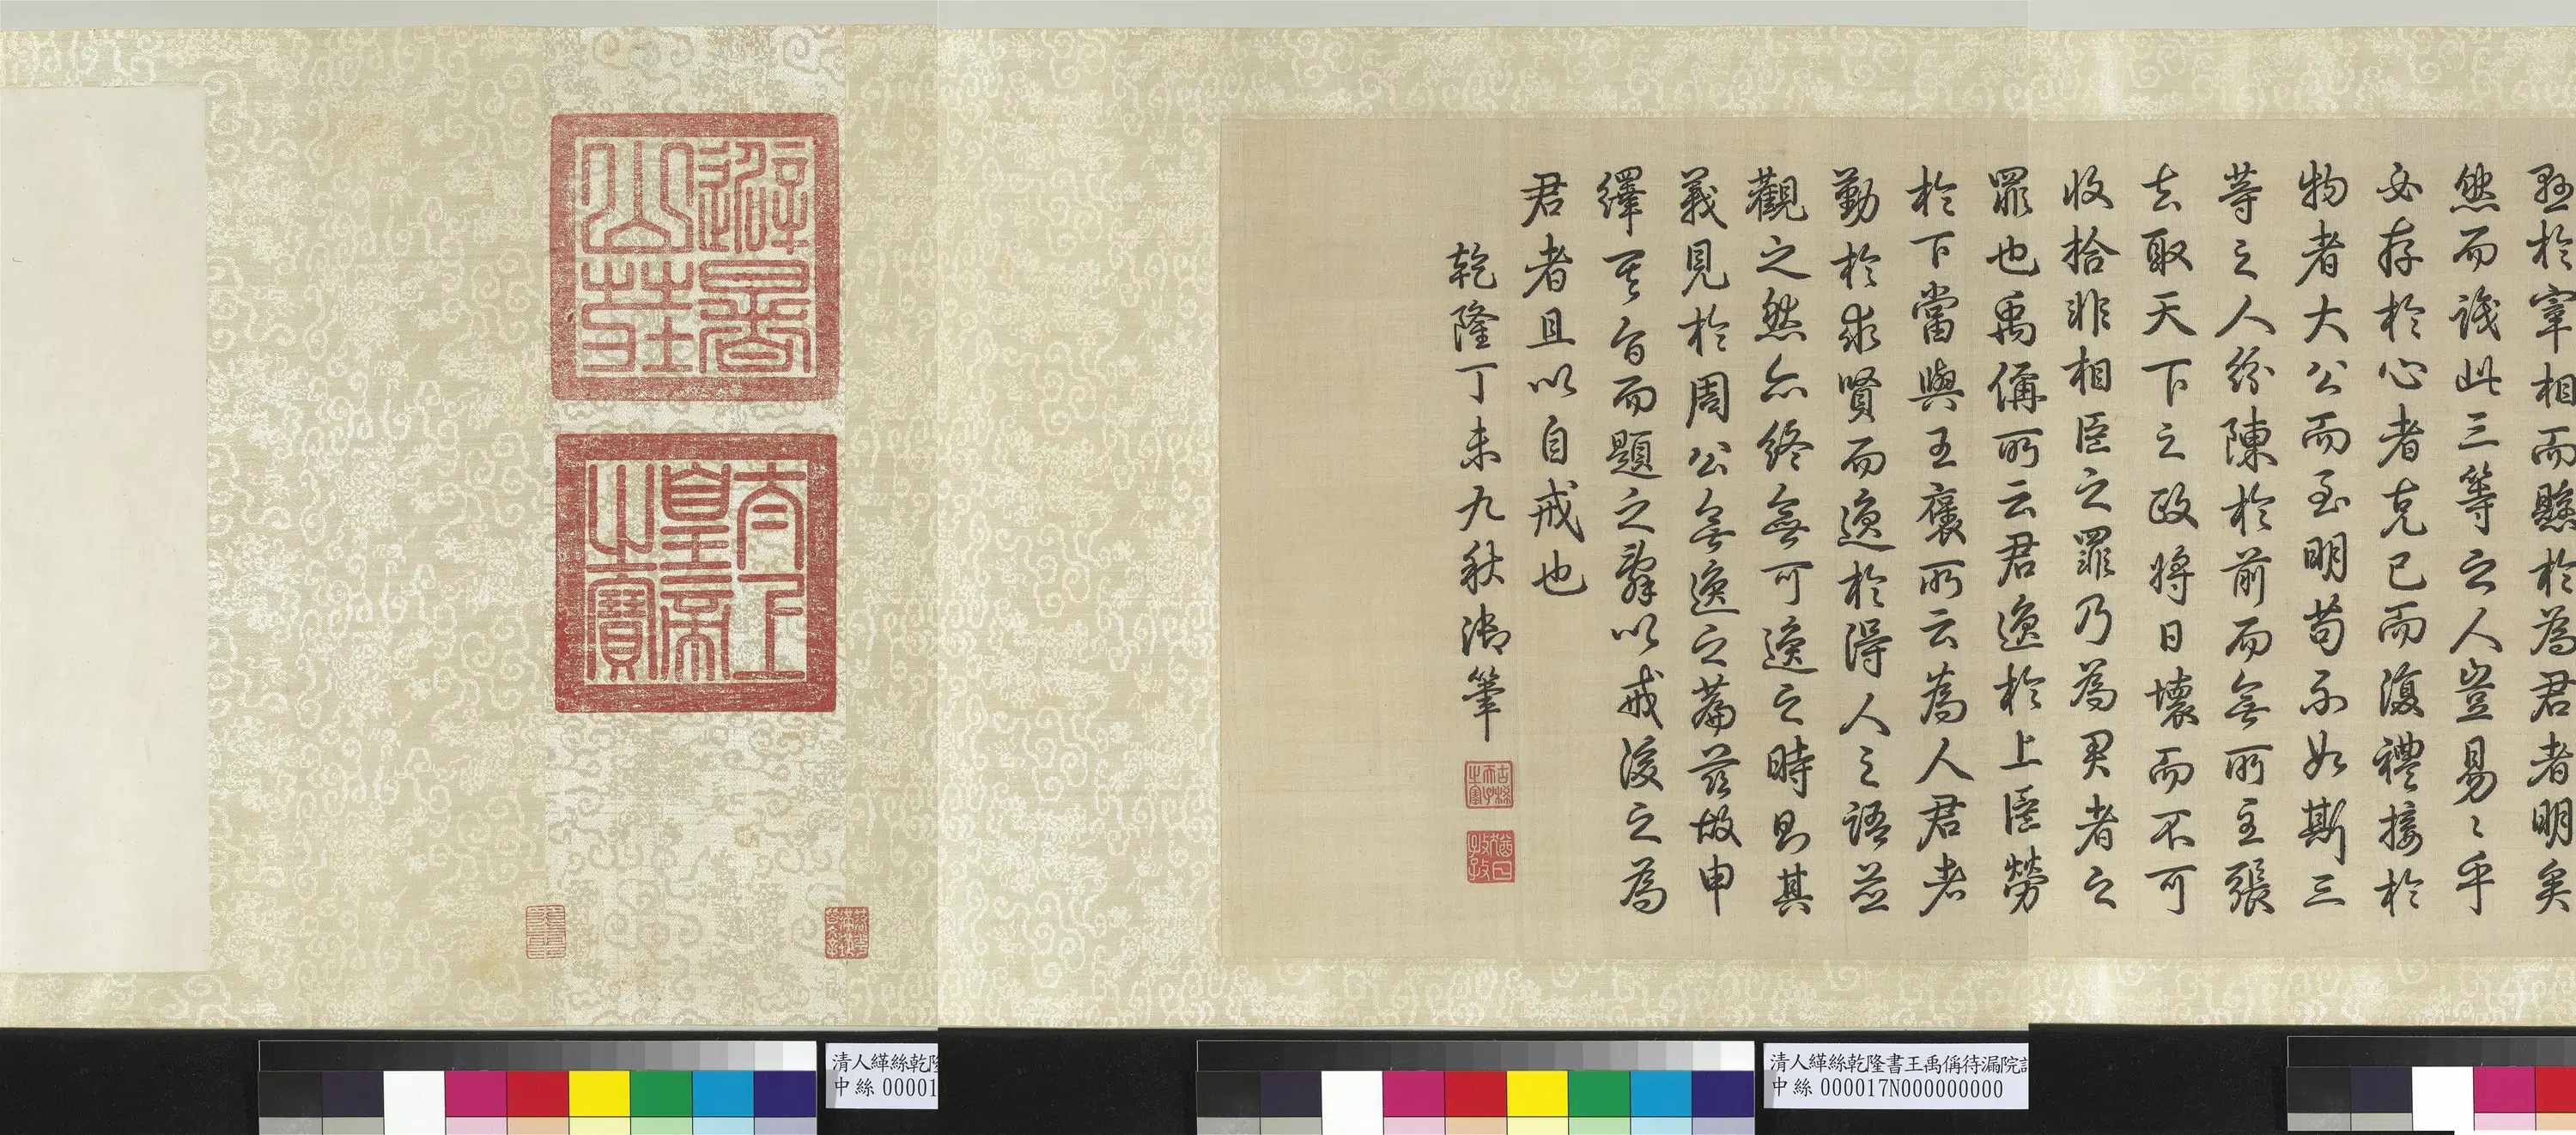 於宰相而懸於為君者明矣
然而識此三等之人豈易〻乎
必存於心者克己而復禮接於
物者大公而至明苟不如斯三
等之人紛陳於前而無所主張
去取天下之政將日壞而不可
收拾非相臣之罪乃為君者之
罪也禹偁所云君逸於上臣勞
於下當與王褒所云為人君者
勤於求賢而逸於得人之語並
觀之然亦終無可逸之時則其
義見於周公無逸之篇茲故申
繹其旨而題之辭以戒後之為
君者且以自戒也
乾隆丁未九秋御筆
古稀天子之寶
猶日孜孜
避暑山莊
太上皇帝之寶
清人緙絲乾隆書王禹偁待漏院
中絲 000017N000000000
清人緙絲乾隆
中絲 00001